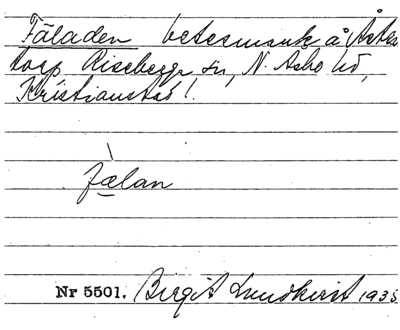 Fäladen betesmark å Åsta
torp Riseberga sn, N. Åsbo hd,
Kristianstad l.
fælan
Nr 5501. Birgit Lundkvist 1935